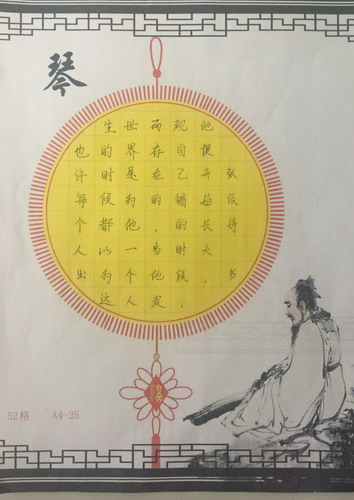 琴
也许每个人出
生的时候都以为这
世界是为他一个人
而存在的,当他发
现自己错的时候,
他便开始长大。
张 书
52格 A4-25